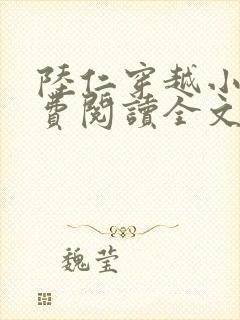 陸仁穿越小
費閱讀全文
魏莹